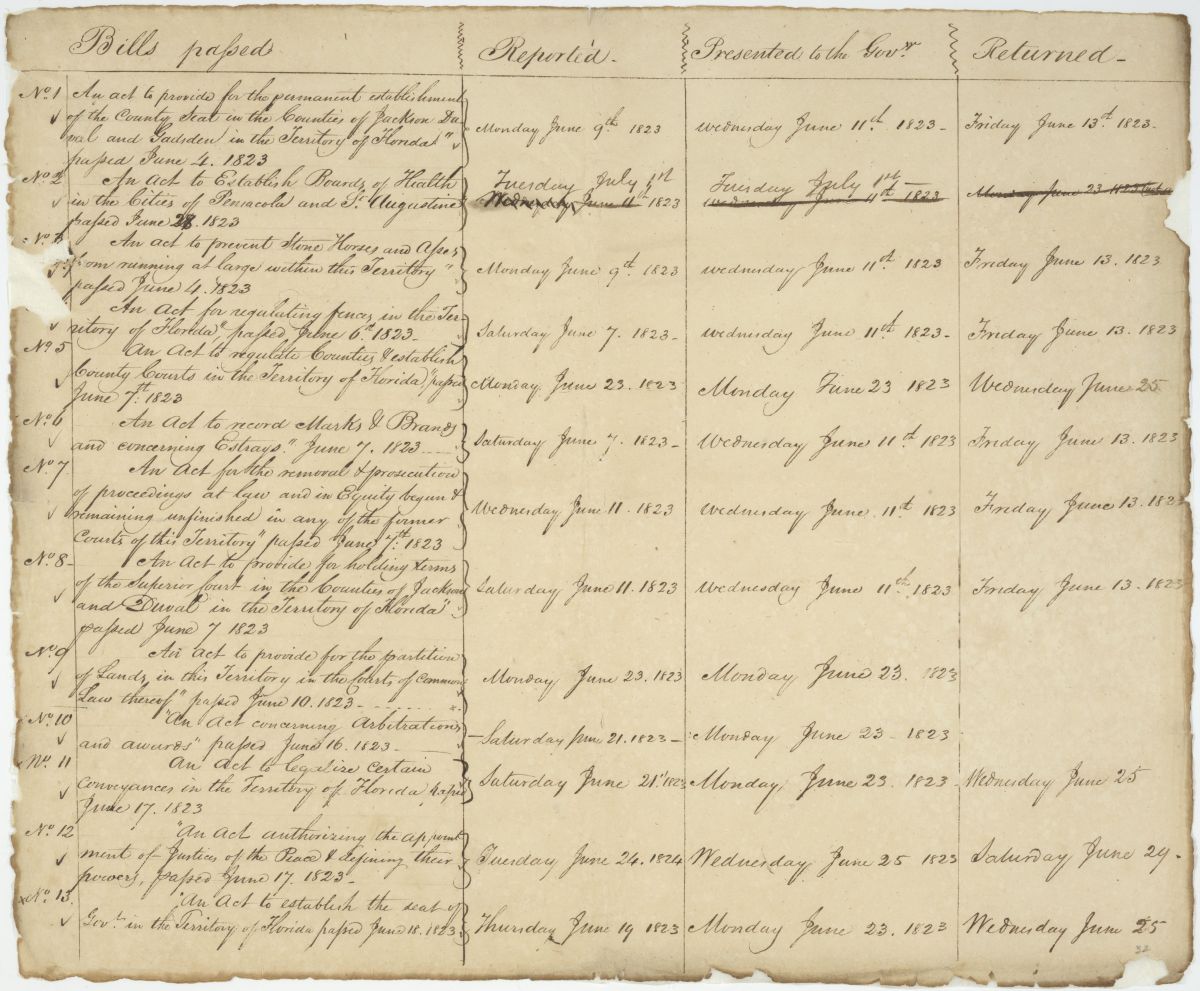 Bills passed
Reported -
Presented to the Govr
Returned -
No 1 An act to provide for the permanent establishment
of the County Seat in the Counties of Jackson Du
val and Gadsden in the Territory of Florida"
passed June 4. 1823
Monday June 9th 1823
Wednesday June 11th 1823 -
Friday June 13th 1823 -
No 2 An Act to Establish Boards of Health
in the Cities of Pensacola and St Augustine
passed June 28. 1823
Tuesday July 1st
Wednesday June 11th 1823
Tuesday July 1st -
Wednesday June 11th 1823
Monday June 23 1823
An act to prevent Stone Horses and Asses
from running at large within this Territory"
passed June 4. 1823
Monday June 9th 1823
Wednesday June 11th 1823
Friday June 13. 1823
An Act for regulating fences in the Ter
ritory of Florida" passed June 6th 1823 -
Saturday June 7. 1823 -
Wednesday June 11th 1823 -
Friday June 13. 1823
No 5 An Act to regulate Counties & establish
County Courts in the Territory of Florida, passed
June 7th 1823
Monday. June 23. 1823
Monday June 23 1823
Wednesday June 25
No 6 An Act to record Marks & Brands
and concerning Estrays." June 7. 1823 -
Saturday June 7. 1823 -
Wednesday June 11th 1823
Friday June 13. 1823
No. 7 An Act for the removal & prosecution
of proceedings at law and in Equity begun &
remaining unfinished in any of the former
Courts of this Territory" passed June 7th 1823
Wednesday June 11. 1823
Wednesday June 11th 1823
Friday June 13. 1823
No. 8 - An Act to provide for holding terms
of the Superior Court in the Counties of Jackson
and Duval in the Territory of Florida"
passed June 7 1823
Saturday June 11. 1823
Wednesday June 11th 1823
Friday June 13. 1823
No. 9 An act to provide for the partition
of Lands in this Territory in the Courts of Common
Law thereof" passed June 10. 1823 -
Monday June 23. 1823
Monday June 23. 1823
No. 10 "An Act concerning Arbitrations
and awards" passed June 16. 1823 -
- Saturday June 21. 1823 -
Monday June 23 - 1823
No. 11 An Act to legalize certain
conveyances in the Territory of Florida, passed
June 17. 1823
Saturday June 21st 1823
Monday June 23. 1823
Wednesday June 25
No. 12 "An Act authorizing the appoint
ment of Justices of the Peace & defining their
powers, passed June 17. 1823 -
Tuesday June 24. 1824
Wednesday June 25 1823
Saturday June 29.
x No. 13. "An Act to establish the seat of
Govt. in the Territory of Florida passed June 18. 1823
Thursday June 19 1823
Monday June 23. 1823
Wednesday June 25
32